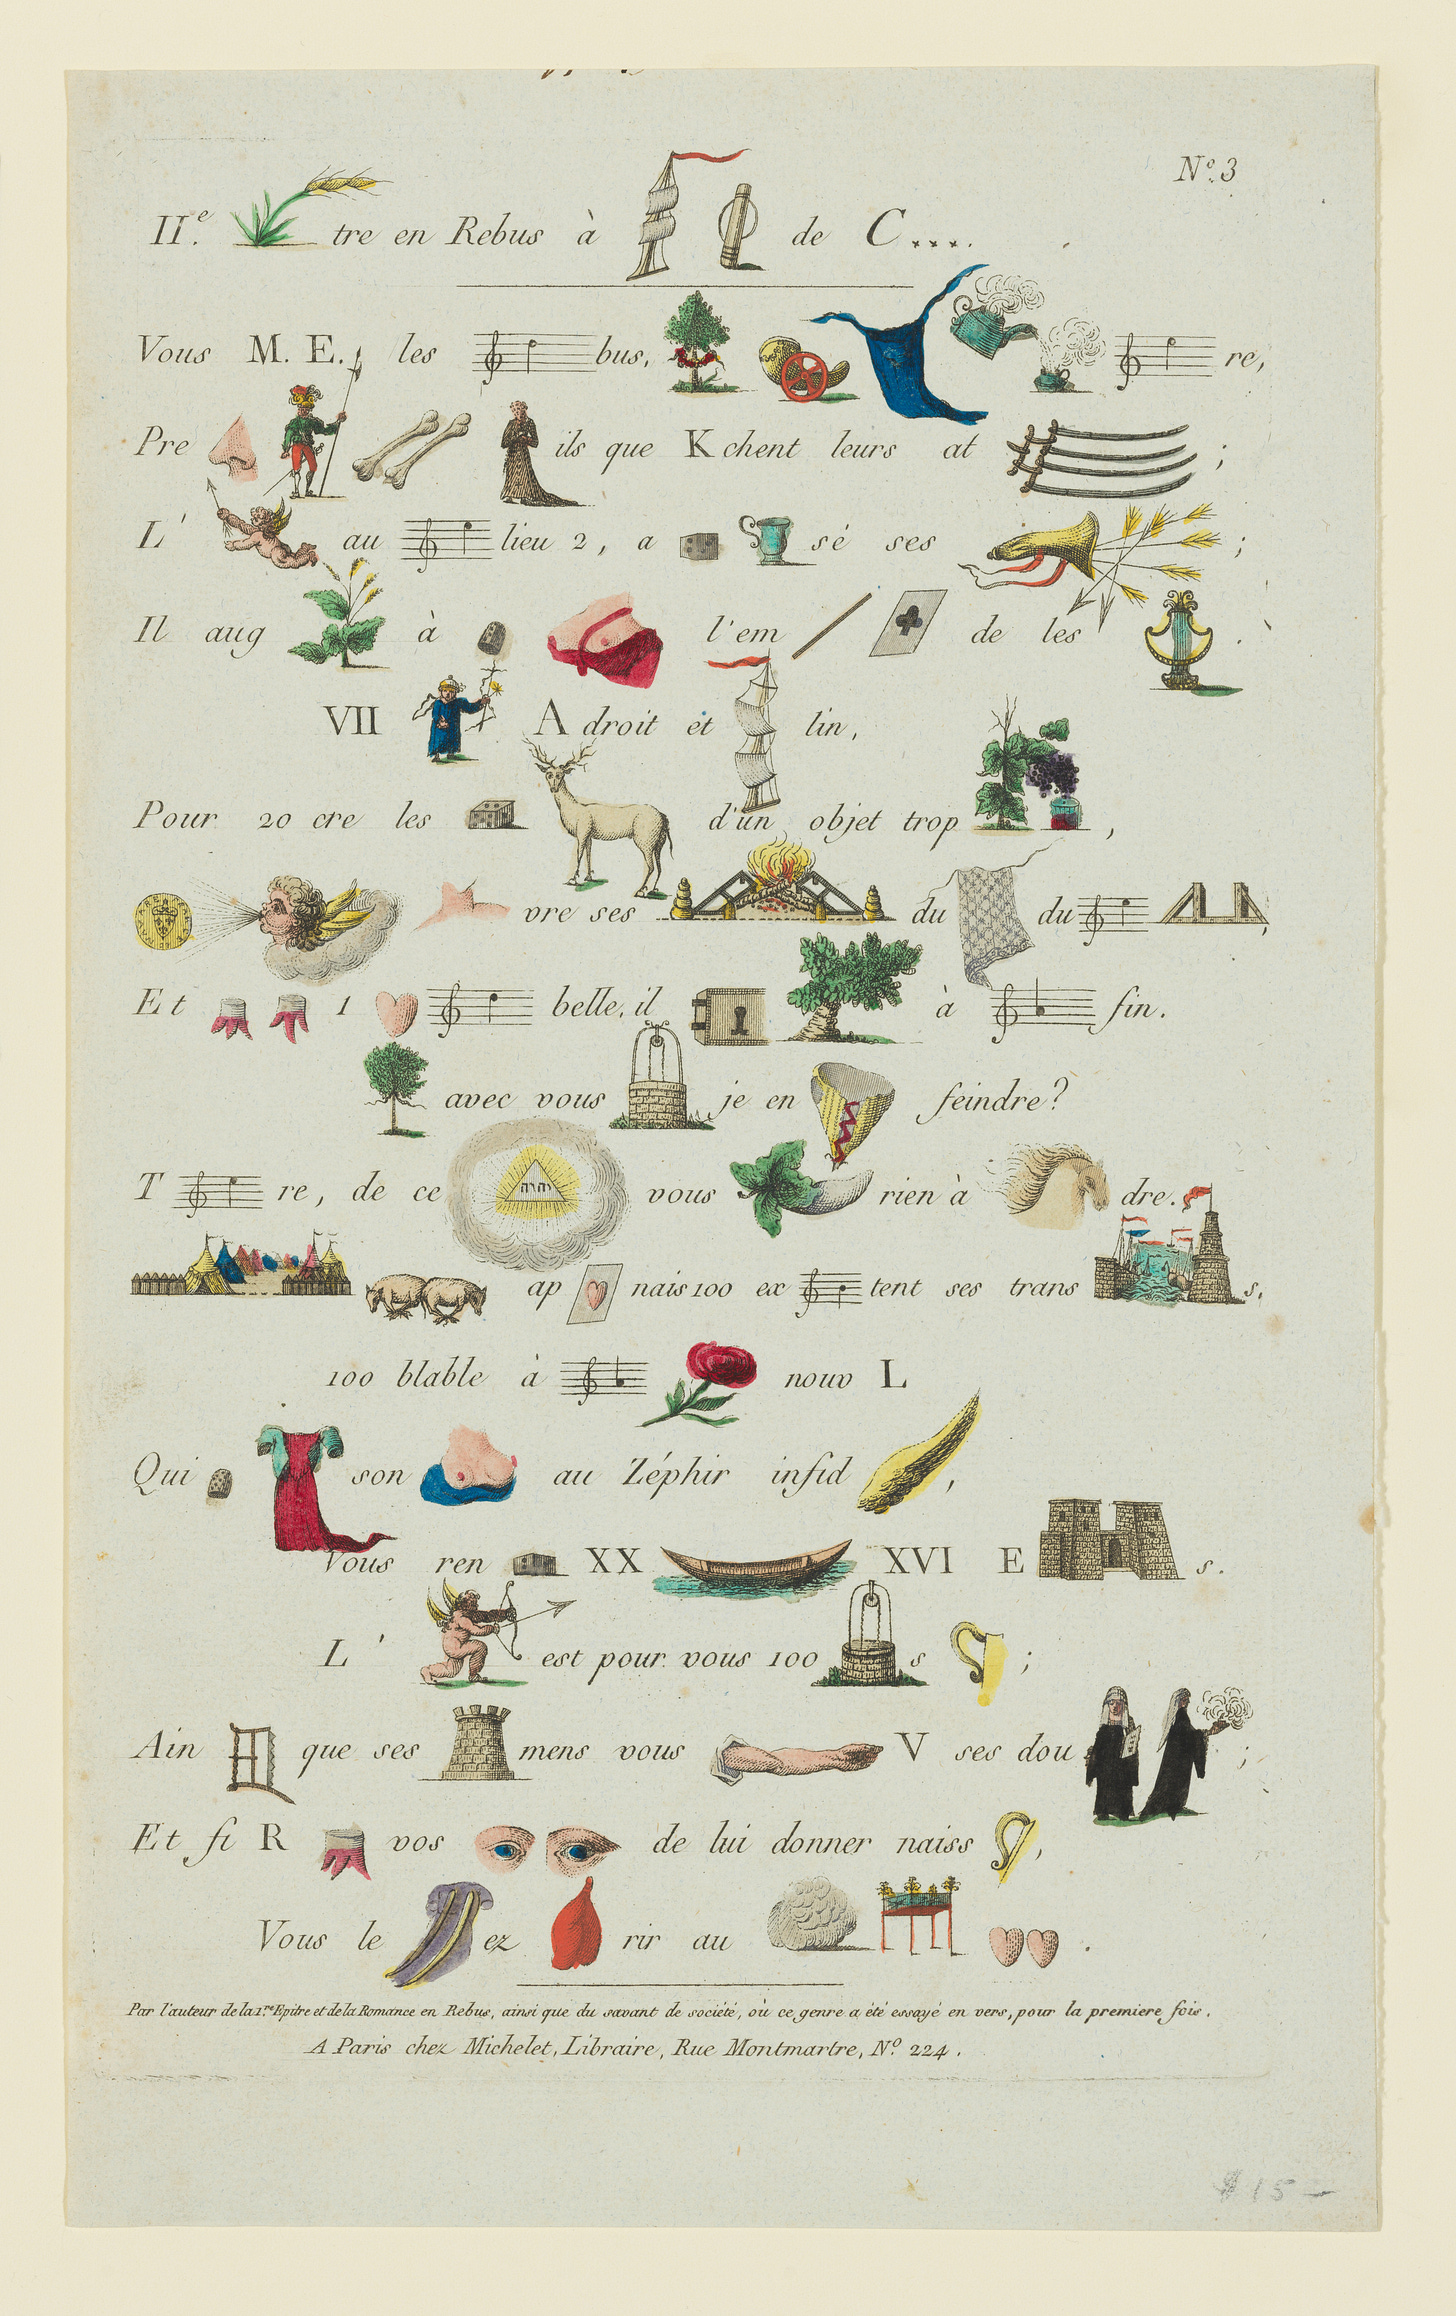 Nº. 3
IIe. tre en Rebus à de C....
Vous M. E. les bus, re,
Pre ils que K chent leurs at ;
L' au lieu 2, a sé ses ;
Il aug à l'em de les .
VII A droit et lin,
Pour 20 cre les d'un objet trop ,
vre ses du du ,
Et 1 belle, il à fin.
avec vous je en feindre?
T re, de ce יהוה vous rien à dre.
ap nais 100 ex tent ses trans s.
100 blable à nouv L
Qui son au Zéphir infid ,
Vous ren XX XVI E s.
L' est pour vous 100 s ;
Ain que ses mens vous V ses dou ;
Et fi R vos de lui donner naiss ,
Vous le ez rir au .
Par l'auteur de la 1.re Epitre et de la Romance en Rebus, ainsi que du savant de société, où ce genre a été essayé en vers, pour la premiere fois.
A Paris chez Michelet, Libraire, Rue Montmartre, Nº. 224.
$15-